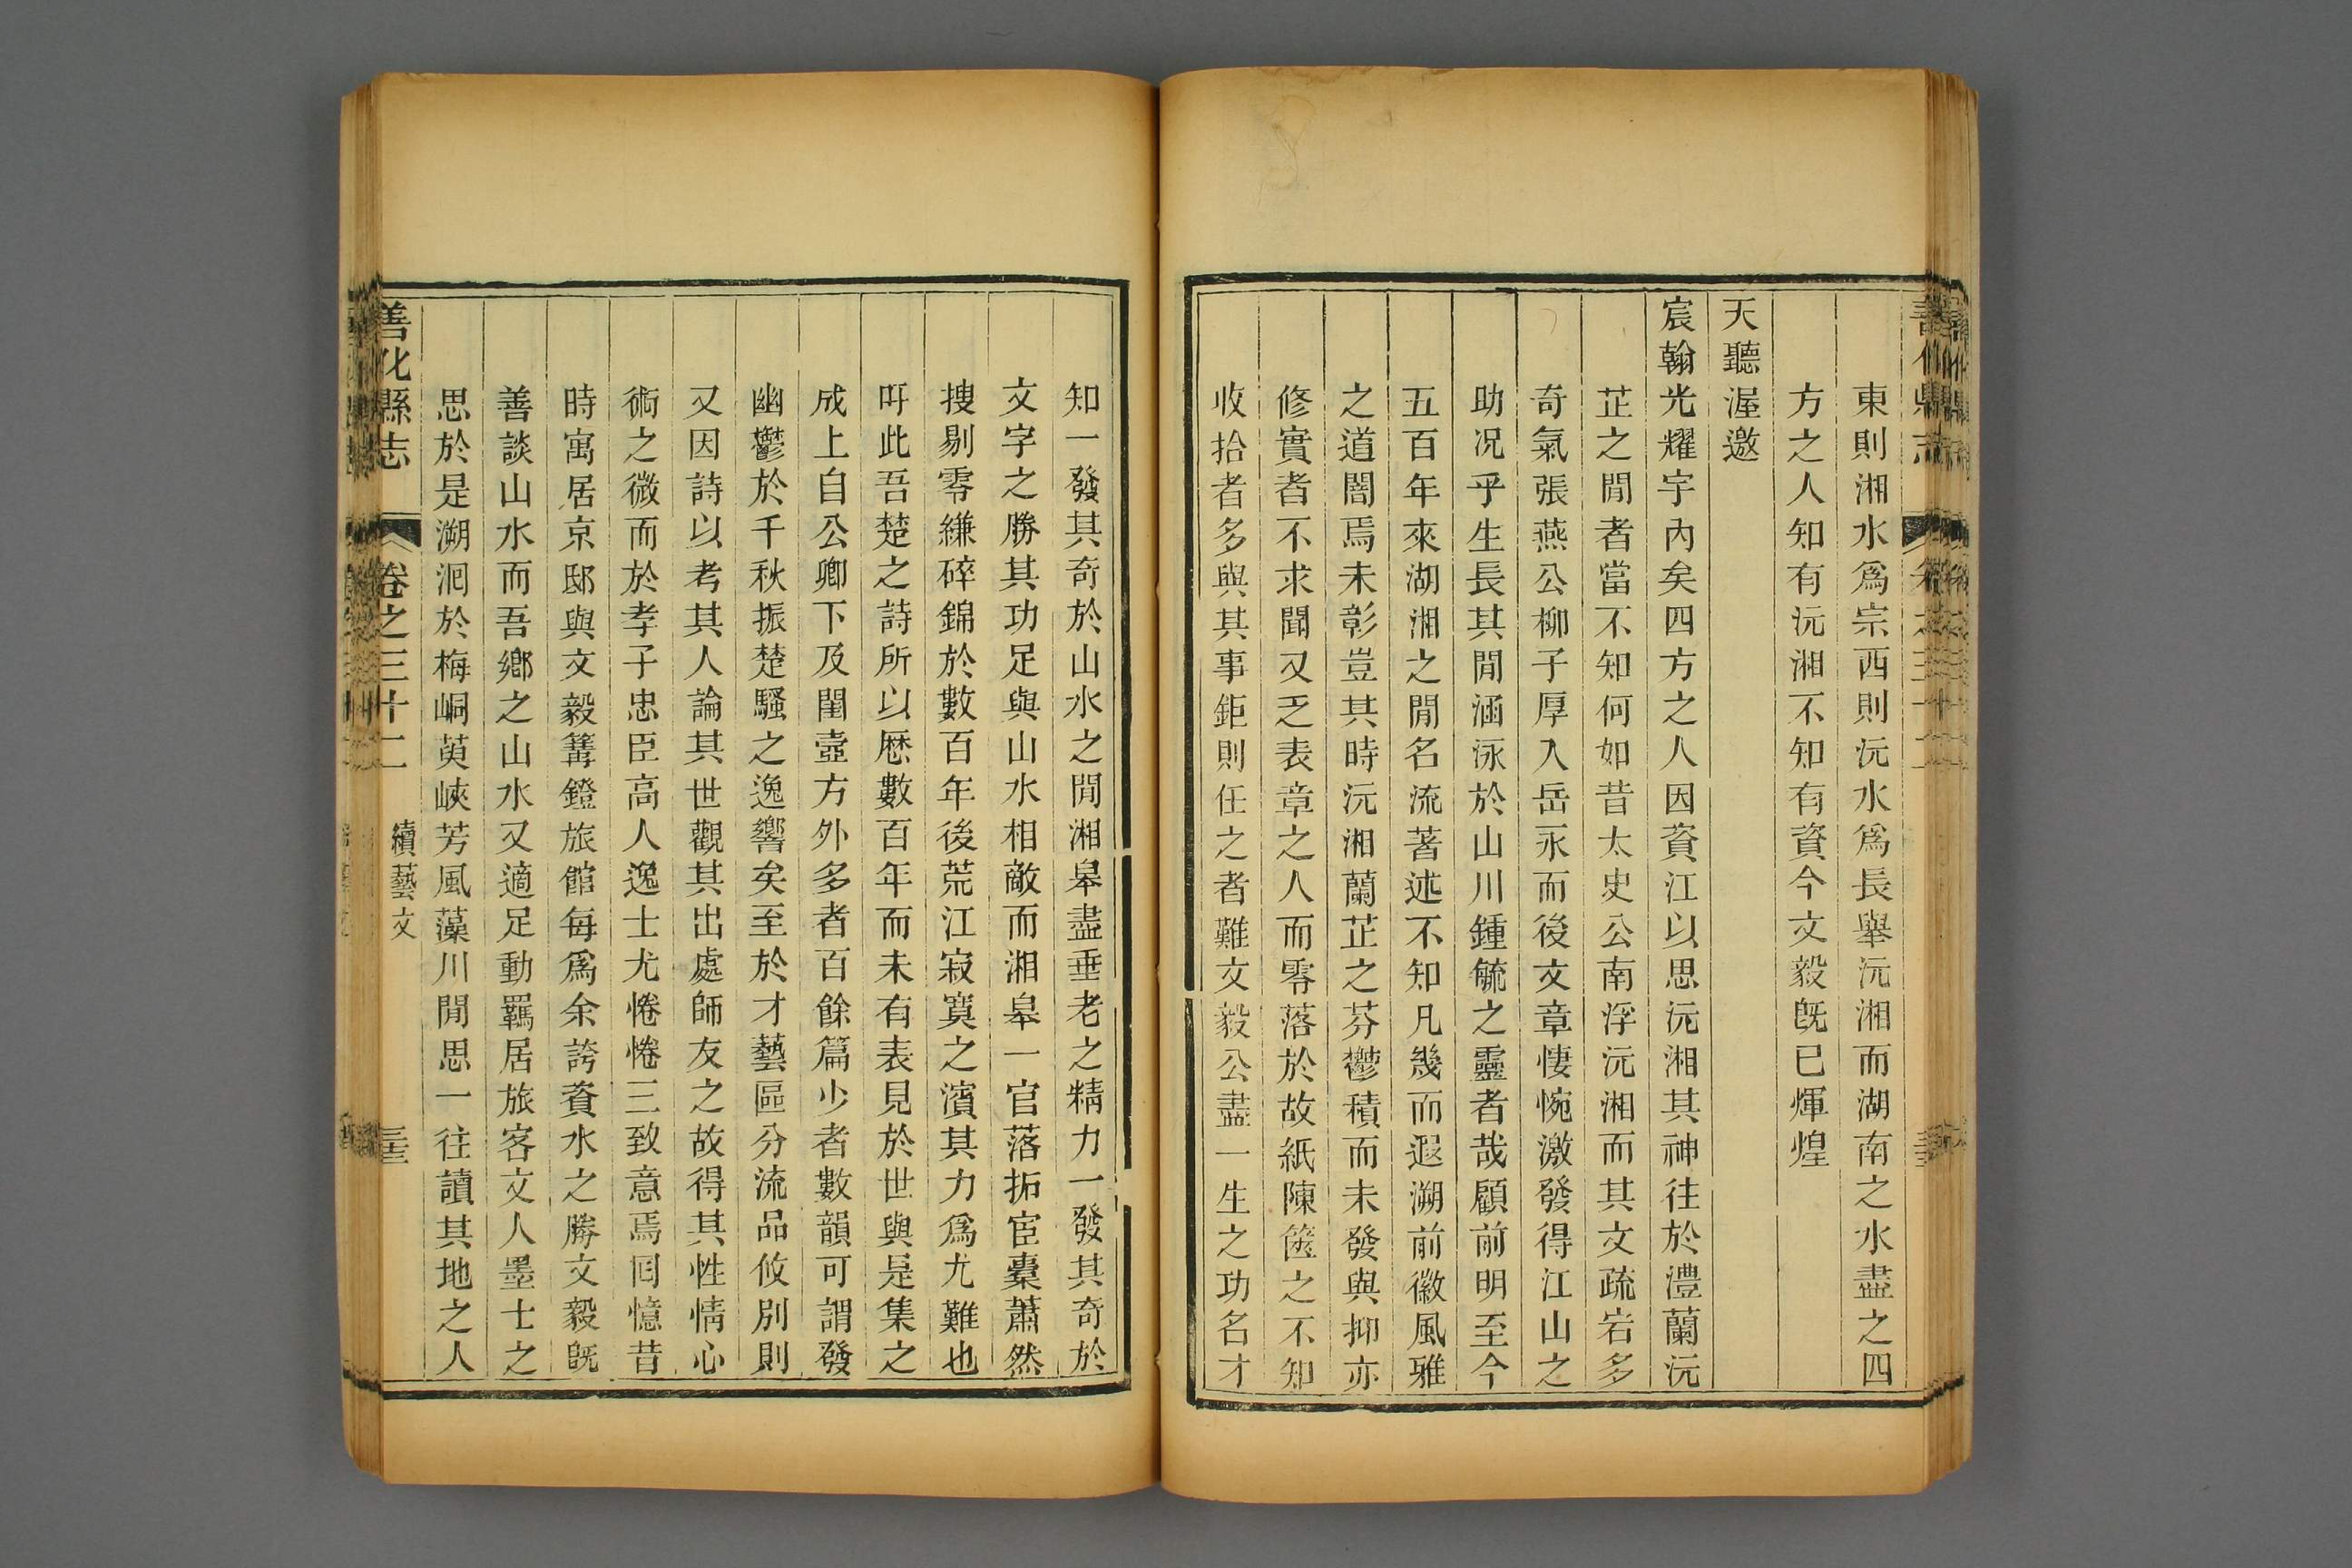 東則湘水爲宗西則沅水爲長舉沅湘而湖南之水盡之四
方之人知有沅湘不知有資今文毅旣已煇煌
天聽渥邀
宸翰光耀宇內矣四方之人因資江以思沅湘其神往於澧蘭沅
芷之閒者當不知何如昔太史公南浮沅湘而其文疏宕多
奇氣張燕公柳子厚入岳永而後文章悽惋激發得江山之
助况乎生長其閒涵泳於山川鍾毓之靈者哉顧前明至今
五百年來湖湘之閒名流著述不知凡幾而遐溯前徽風雅
之道闇焉未彰豈其時沅湘蘭芷之芬鬱積而未發與抑亦
修實者不求聞又乏表章之人而零落於故紙陳篋之不知
收拾者多與其事鉅則任之者難文毅公盡一生之功名才
知一發其奇於山水之閒湘皋盡垂老之精力一發其奇於
文字之勝其功足與山水相敵而湘皋一官落拓宦橐蕭然
搜剔零縑碎錦於數百年後荒江寂寞之濱其力爲尤難也
吁此吾楚之詩所以厯數百年而未有表見於世與是集之
成上自公卿下及閨壼方外多者百餘篇少者數韻可謂發
幽鬱於千秋振楚騷之逸響矣至於才藝區分流品攸別則
又因詩以考其人論其世觀其出處師友之故得其性情心
術之微而於孝子忠臣高人逸士尤惓惓三致意焉囘憶昔
時寓居京邸與文毅篝鐙旅館每爲余誇資水之勝文毅旣
善談山水而吾鄉之山水又適足動羈居旅客文人墨士之
思於是溯洄於梅峒萸峽芳風藻川閒思一往讀其地之人
善化縣志 卷之三十二 續藝文 三三